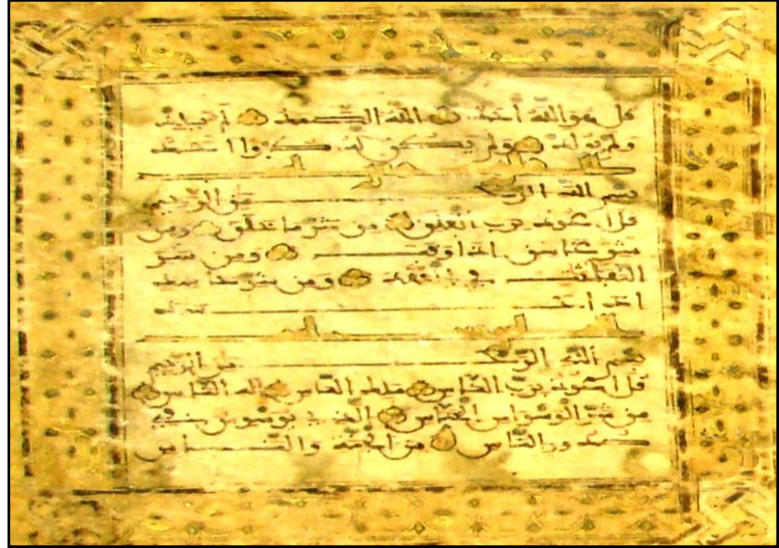 قل هو الله أحد الله الصمد لم يلد
ولم يولد ولم يكن له كفوا أحد
بسم الله الرحمن الرحيم
قل أعوذ برب الفلق من شر ما خلق ومن
شر غاسق إذا وقب ومن شر
النفاثات في العقد ومن شر حاسد
إذا حسد
بسم الله الرحمن الرحيم
قل أعوذ برب الناس ملك الناس إله الناس
من شر الوسواس الخناس الذي يوسوس في
صدور الناس من الجنة والناس